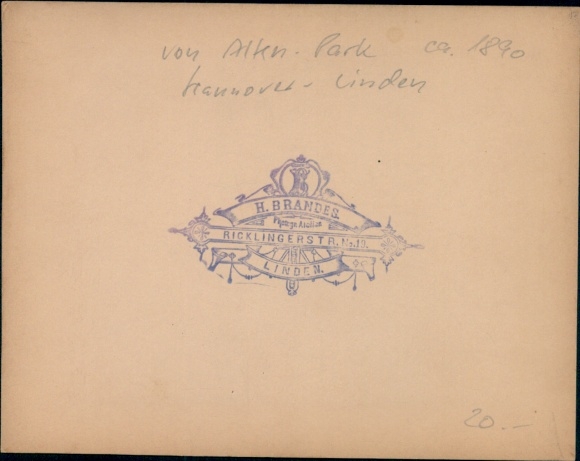 von Alten-Park ca. 1890
Hannover-Linden
H. BRANDES.
RICKLINGERSTR. No. 19.
LINDEN.
20.-